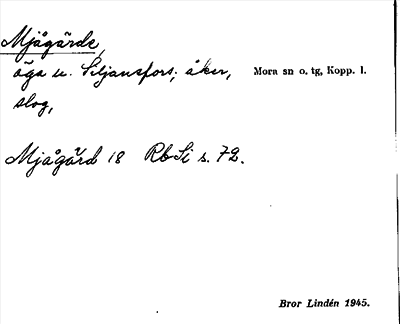 Mjågärde,
äga u. Siljansfors; åker, Mora sn o. tg, Kopp. l.
slog,
Mjågård 18 RbSi s. 72.
Bror Lindén 1945.